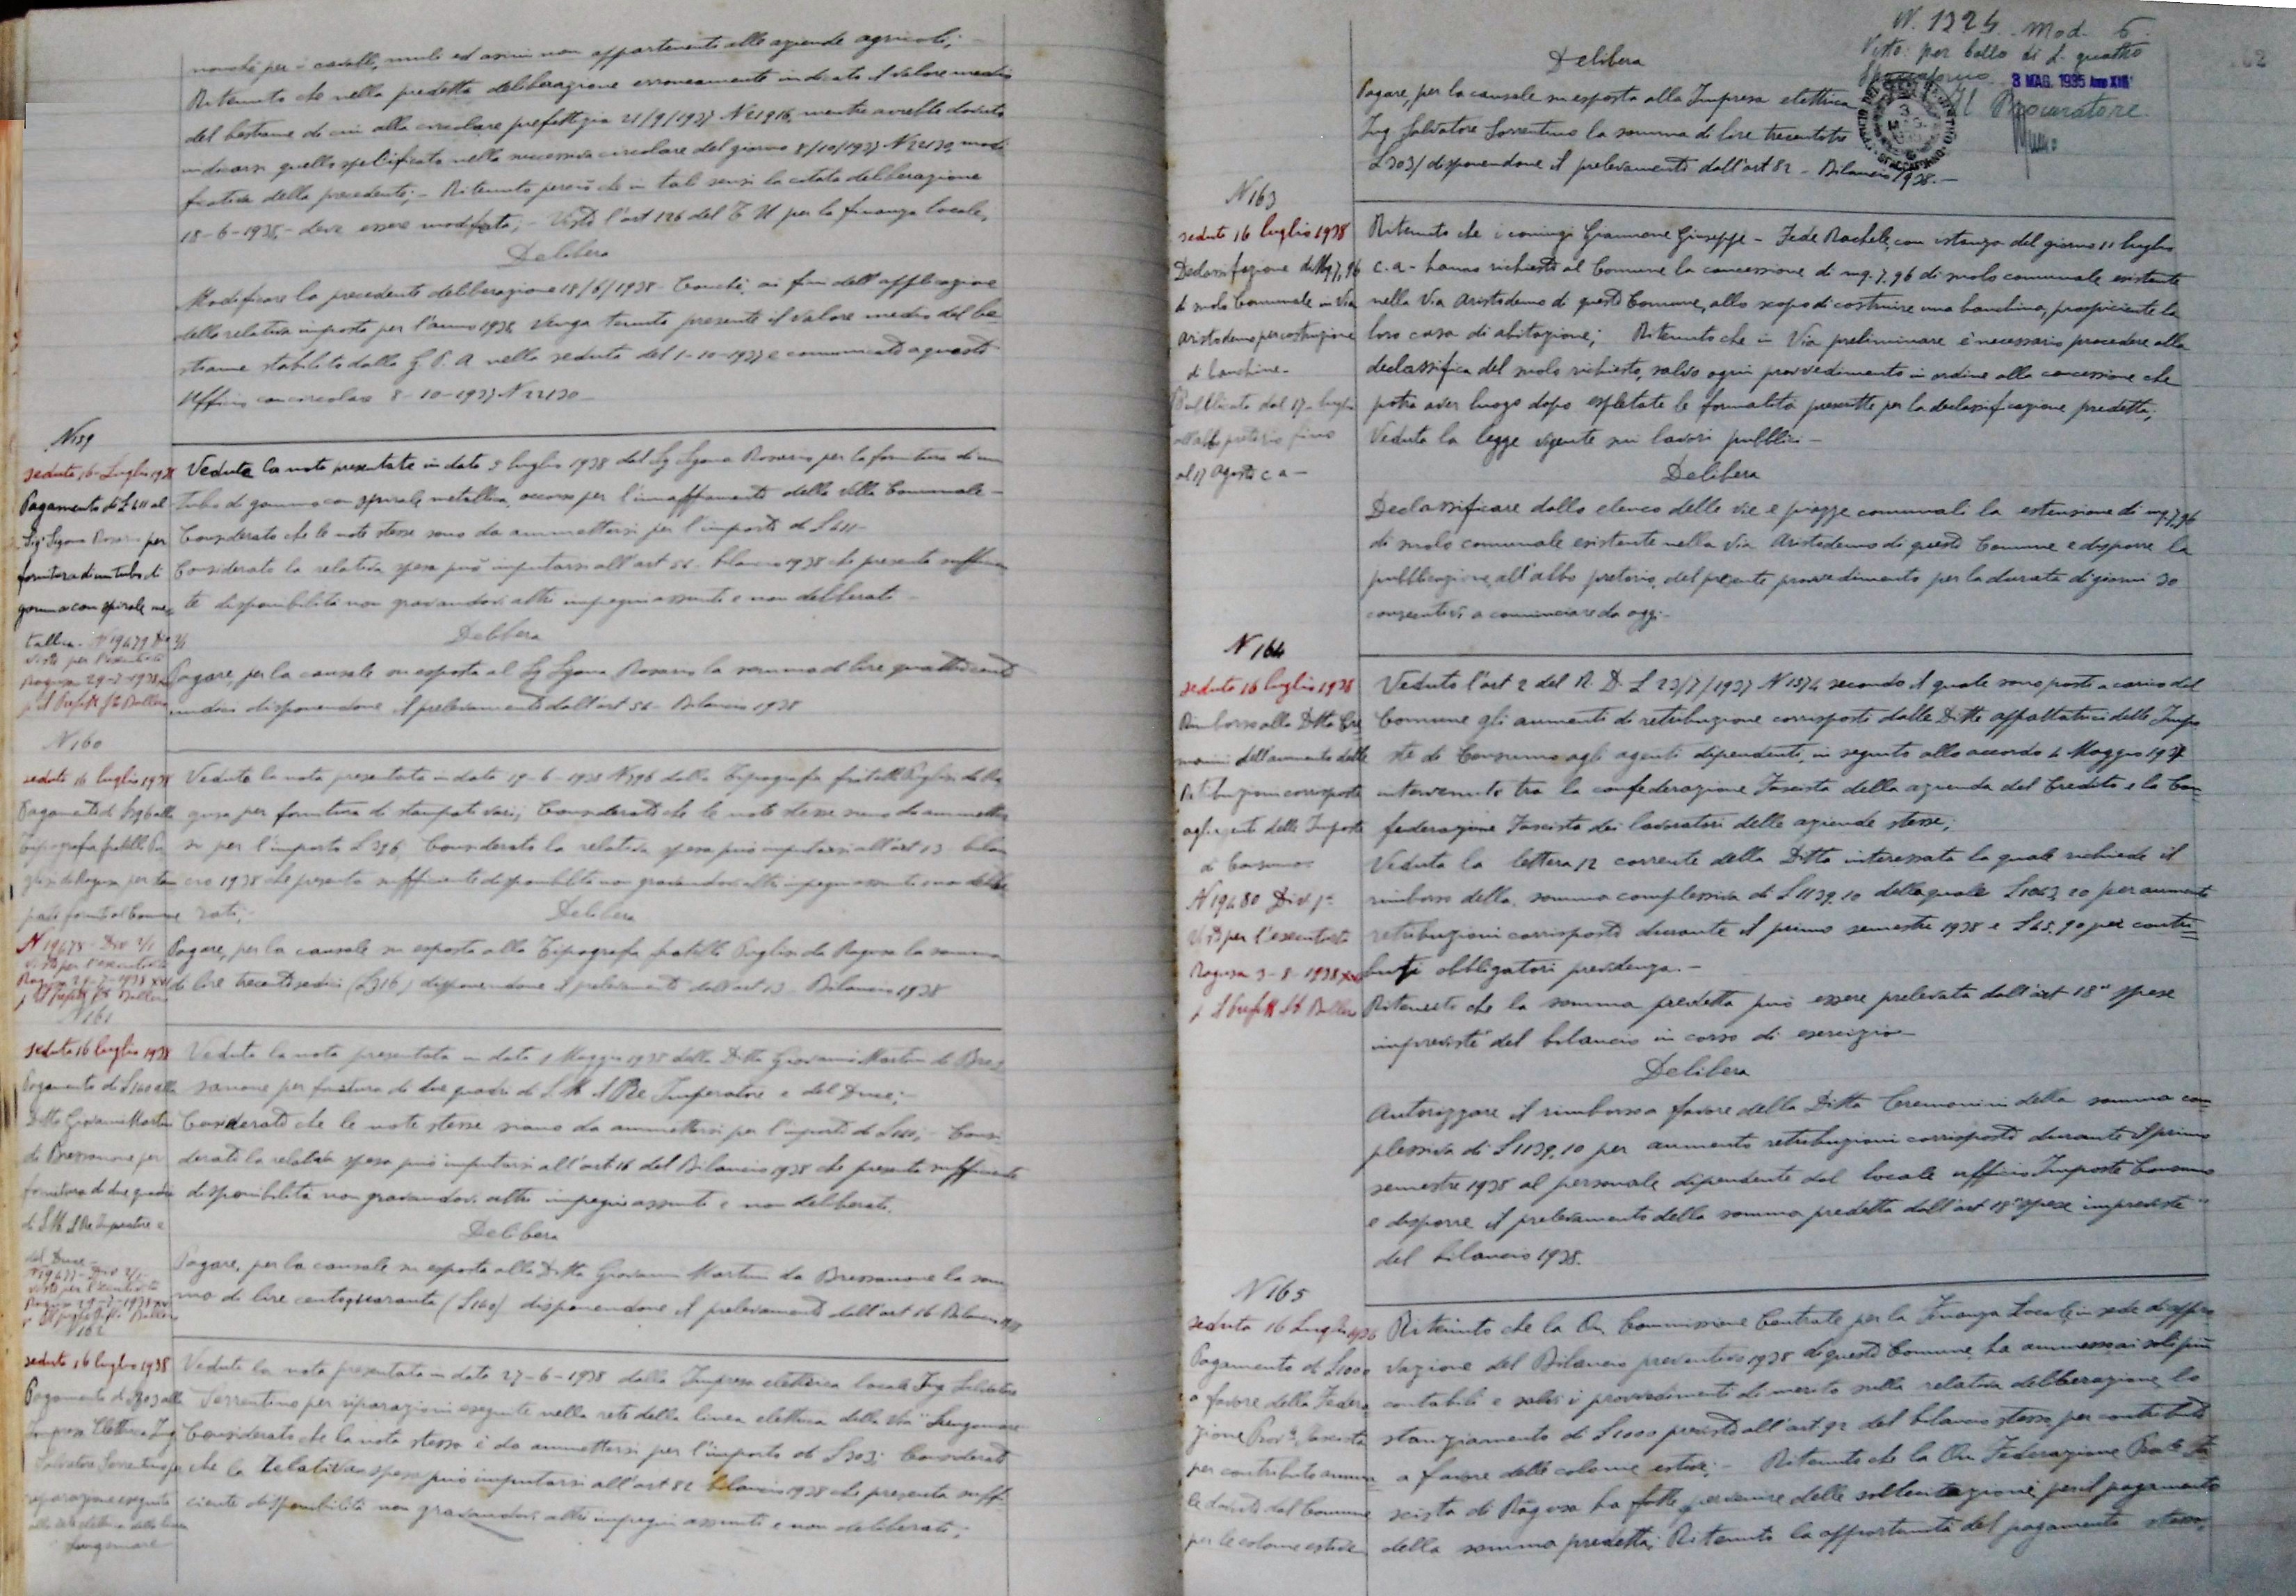 nonché per i cavalli, muli ed asini non appartenenti alle aziende agricole; -
Ritenuto che nella predetta deliberazione erroneamente indicato il valore medio
del bestiame di cui alla circolare prefettizia 21/9/1937 N 21916, mentre avrebbe dovuto
indicarsi quello specificato nella successiva circolare del giorno 8/10/1937 N 22130, modi
ficativa della precedente; - Ritenuto perciò che in tali sensi la citata deliberazione
18-6-1938, - deve essere modificata; - Visto l'art 126 del T U per la finanza locale,
Delibera
Modificare la precedente deliberazione 18/6/1938 - ai fini dell'applicazione
della relativa imposta per l'anno 1938, venga tenuto presente il valore medio del be=
stiame stabilito dalla G. P. A nella seduta del 1-10-1937 e comunicato a questo
Ufficio con circolare 8-10-1937 N 22130 -
N 159
seduta 16 Luglio 1938
Pagamento di £ 411 al
Sig. Rosario per
fornitura di un tubo di
gomma con spirale me=
tallica - N 19479 Div 2/1
Visto per l'esecutività
Ragusa 29-7-1938
p. il Prefetto
Veduta la nota presentata in data 9 luglio 1938 dal Sig Rosario per la fornitura di un
tubo di gomma con spirale metallica, occorso per l'innaffiamento della Villa Comunale -
Considerato che le note stesse sono da ammettersi per l'importo di £ 411 -
Considerato la relativa spesa può imputarsi all'art 56 - bilancio 1938 che presenta sufficien
te disponibilità non gravandovi altri impegni assunti e non deliberati -
Delibera
Pagare, per la causale su esposta al Sig Rosario la somma di lire quattrocento
undici disponendone il prelevamento dall'art 56 - Bilancio 1938
N 160
seduta 16 luglio 1938
Pagamento di £ 396 alla
Tipografia fratelli Pu
glisi da Ragusa per stam
pati forniti al Comune
N 19478 - Div 2/1
Visto per l'esecutività
Ragusa 29-7-1938 XVI
p. il Prefetto
Veduta la nota presentata in data 18-6-1938 N 396 dalla Tipografia fratelli Puglisi da Ra
gusa per fornitura di stampati vari; Considerato che le note stesse sono da ammetter
si per l'importo £ 396; Considerato la relativa spesa può imputarsi all'art 13 - bilan
cio 1938 che presenta sufficiente disponibilità non gravandovi altri impegni assunti e non delibe
rati; -
Delibera
Pagare, per la causale su esposta alla Tipografia fratelli Puglisi da Ragusa la somma
di lire trecentosedici (£ 316) disponendone il prelevamento dall'art 13 - Bilancio 1938
N 161
seduta 16 luglio 1938
Pagamento di £ 140 alla
Ditta Giovanni Martini
di Bressanone per
fornitura di due quadri
di S. M. il Re Imperatore e
del Duce -
N 19477 - Div 2/1
Visto per l'esecutività
Ragusa 29-7-1938 XVI
p. Il Prefetto
Veduta la nota presentata in data 1 Maggio 1938 dalla Ditta Giovanni Martini di Bres
sanone per fornitura di due quadri di S. M. il Re Imperatore e del Duce; -
Considerato che le note stesse siano da ammettersi per l'importo di £ 140; - Consi
derato la relativa spesa può imputarsi all'art 16 del Bilancio 1938 che presenta sufficiente
disponibilità non gravandovi altri impegni assunti e non deliberati.
Delibera
Pagare, per la causale su esposta alla Ditta Giovanni Martini da Bressanone la som
ma di lire centoquaranta (£ 140) disponendone il prelevamento dall'art 16 Bilancio 1938
N 162
seduta 16 luglio 1938
Pagamento di £ 303 alla
Impresa Elettrica Ing
Salvatore Sorrentino per
riparazione eseguita
alla rete elettrica della linea
Lungomare
Veduta la nota presentata in data 27-6-1938 dalla Impresa elettrica locale Ing Salvatore
Sorrentino per riparazioni eseguite nella rete della linea elettrica della Via "Lungomare
Considerato che la nota stessa è da ammettersi per l'importo di £ 303; Considerato
che la relativa spesa può imputarsi all'art 82 bilancio 1938 che presenta suffi
ciente disponibilità non gravandovi altri impegni assunti e non deliberati; -
N. 1324 Mod. 6.
Visto: per bollo di £. quattro
3 MAG. 1935 Anno XIII
Il Procuratore
Delibera
Pagare, per la causale su esposta alla Impresa elettrica
Ing Salvatore Sorrentino la somma di lire trecentotre
£ 303/ disponendone il prelevamento dall'art 82 - Bilancio 1938. -
N 163
seduta 16 luglio 1938
Declassificazione di Mq 7,96
di suolo Comunale in Via
Aristodemo per costruzione
di banchina -
Pubblicata dal 17 luglio
all'albo pretorio fino
al 17 Agosto c a -
Ritenuto che i coniugi Giannone Giuseppe - Fede Rachele, con istanza del giorno 11 luglio
c. a - hanno richiesto al Comune la concessione di mq. 7,96 di suolo comunale esistente
nella Via Aristodemo di questo Comune, allo scopo di costruire una banchina, prospiciente la
loro casa di abitazione; Ritenuto che in Via preliminare è necessario procedere alla
declassifica del suolo richiesto, salvo ogni provvedimento in ordine alla concessione che
potrà aver luogo dopo espletate le formalità prescritte per la declassificazione predetta;
Veduta la legge vigente sui lavori pubblici -
Delibera
Declassificare dallo elenco delle vie e piazze comunali la estensione di mq. 7,96
di suolo comunale esistente nella Via Aristodemo di questo Comune e disporre la
pubblicazione, all'albo pretorio, del presente provvedimento per la durata di giorni 30
consecutivi a cominciare da oggi -
N 164
seduta 16 luglio 1938
Rimborso alla Ditta Cre
monini dell'aumento delle
Retribuzioni corrisposte
agli agenti delle Imposte
di Consumo.
N 19480 Div. 1ª
Visto per l'esecutività
Ragusa 3-8-1938 XVI
p. Il Prefetto
Veduto l'art 2 del R. D. L 23/7/1937 N 1574 secondo il quale sono posti a carico del
Comune gli aumenti di retribuzione corrisposti dalle Ditte appaltatrici delle Impo
ste di Consumo agli agenti dipendenti, in seguito allo accordo 4 Maggio 1937
intervenuto tra la confederazione Fascista della azienda del Credito e la Con=
federazione Fascista dei lavoratori delle aziende stesse;
Veduta la lettera 12 corrente della Ditta interessata la quale richiede il
rimborso della somma complessiva di £ 1139,10 della quale £ 1043,20 per aumento
retribuzioni corrisposto durante il primo semestre 1938 e £ 65,90 per contri=
buti obbligatori previdenza. -
Ritenuto che la somma predetta può essere prelevata dall'art 18 " spese
impreviste" del bilancio in corso di esercizio
Delibera
Autorizzare il rimborso a favore della Ditta Cremonini della somma com=
plessiva di £ 1139,10 per aumento retribuzioni corrisposto durante il primo
semestre 1938 al personale dipendente dal locale ufficio Imposte Consumo
e disporre il prelevamento della somma predetta dall'art 18 "spese impreviste"
del bilancio 1938.
N 165
seduta 16 Luglio 1938
Pagamento di £ 1000
a favore della Federa
zione Prov.le Fascista
per contributo annua
le dovuto dal Comune
per le colonie estive
Ritenuto che la On. Commissione Centrale per la Finanza Locale, in sede di appro
vazione del Bilancio preventivo 1938 di questo Comune, ha ammesso ai soli fini
contabili e salvi i provvedimenti di merito sulla relativa deliberazione, lo
stanziamento di £ 1000 previsto all'art 92 del bilancio stesso, per contributo
a favore delle colonie estive; - Ritenuto che la On. Federazione Prov.le Fa=
scista di Ragusa ha fatto pervenire delle sollecitazioni per il pagamento
della somma predetta; Ritenuto la opportunità del pagamento stesso,